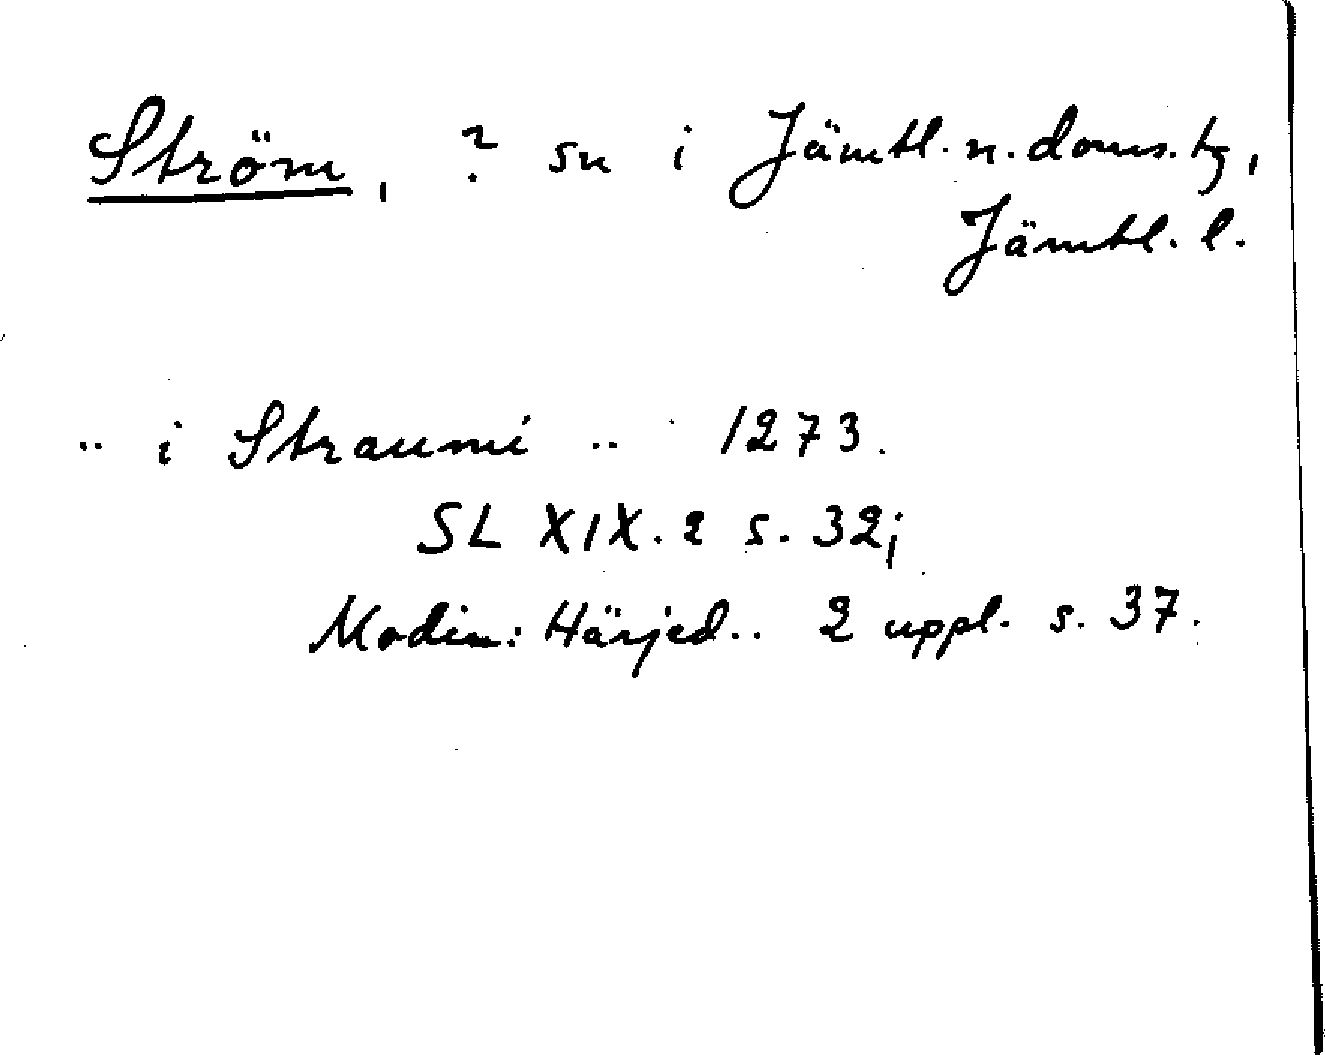 Ström, ? sn i Jämtl. n. doms. tg,
Jämtl. l.
.. i Straumi .. 1273.
SL XIX. 2 s. 32;
Modin: Härjed.. 2 uppl. s. 37.